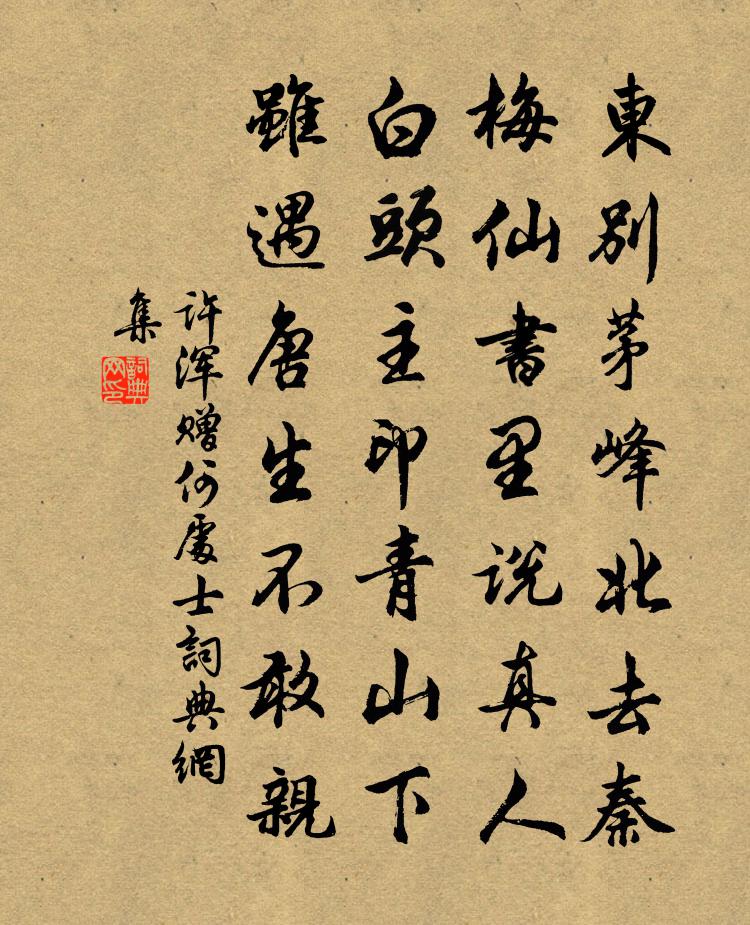 東別茅峰北去秦
梅仙書里説真人
白頭主印青山下
雖遇唐生不敢親
许渾赠何處士詞典網
集
詞典
网印